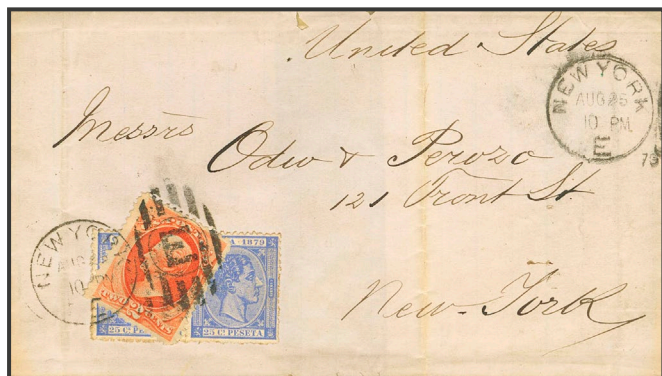 United States
NEW YORK
AUG 25
10 PM
E
79
Messrs
Odio & Perozo
121 Front St.
New-York
NEW YORK
AUG
10
E
TWO CENTS
A 1879
25 Cs PESETA
25 Cs PESETA